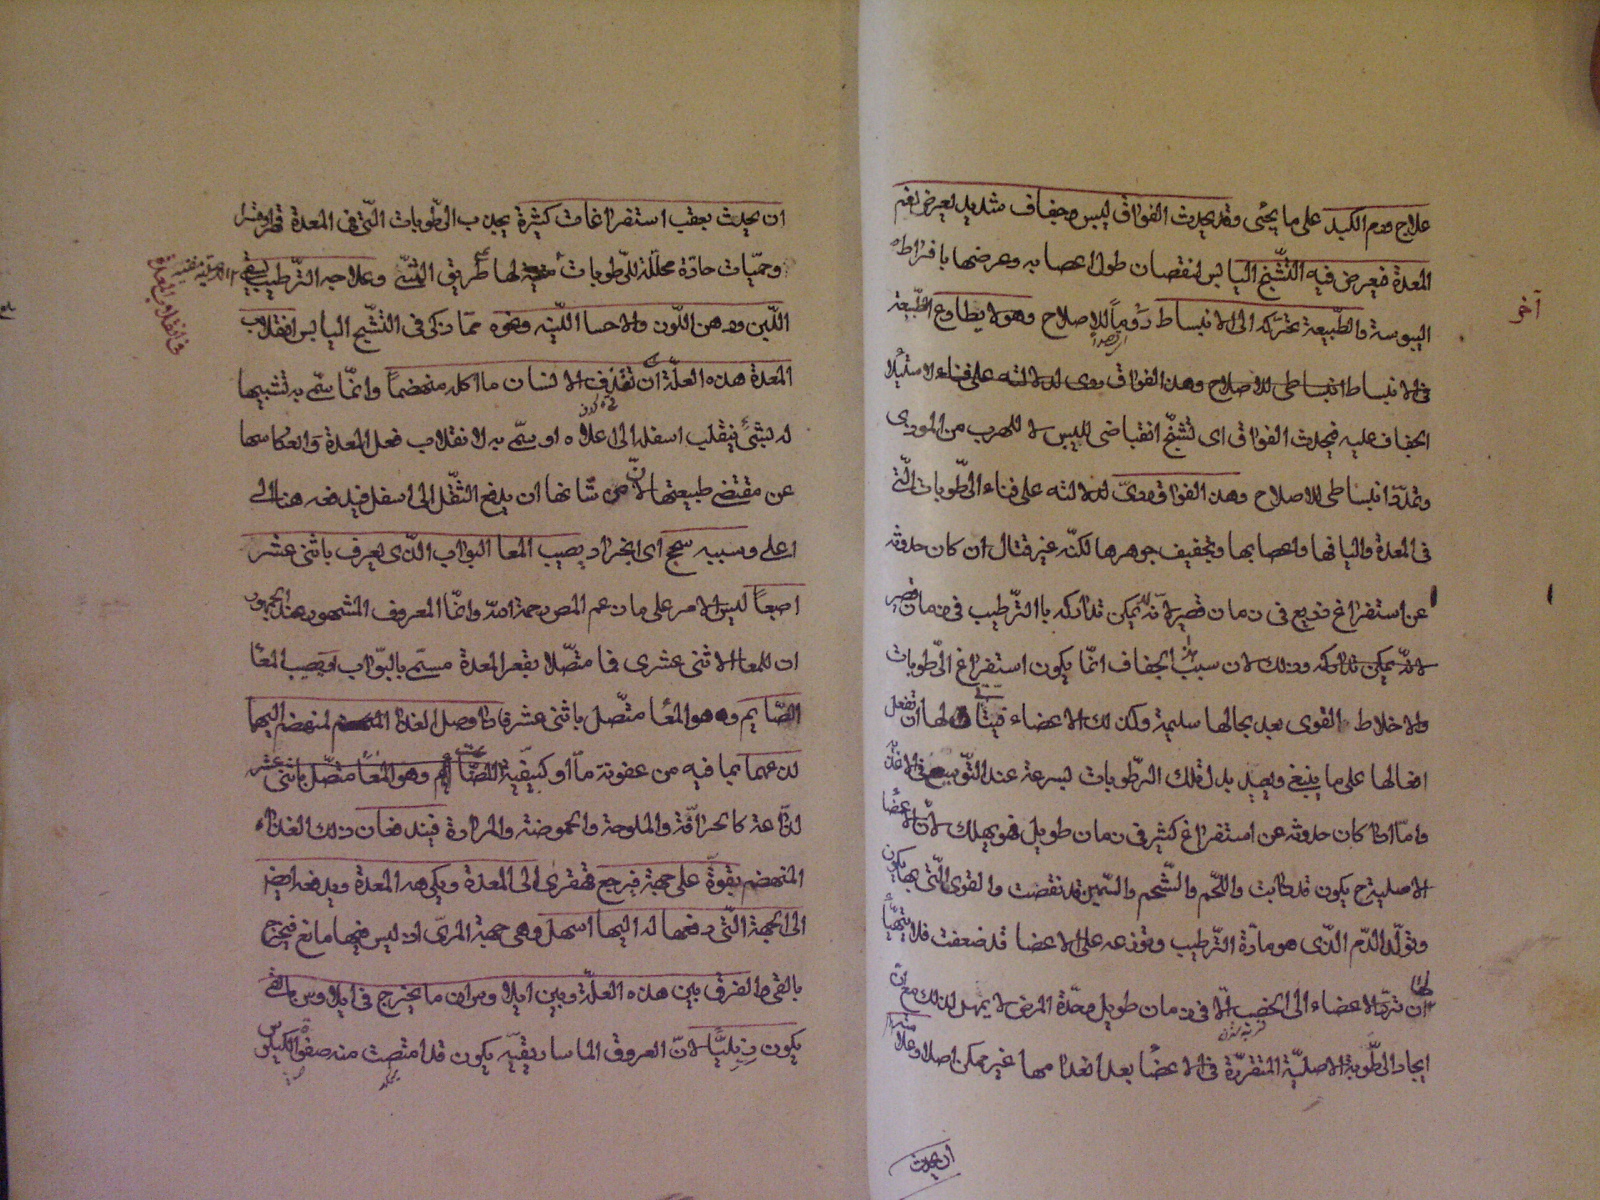 علاج ورم الكبد على ما يجئ وقد يحدث الفواق ليبس وجفاف شديد يعرض لفم
المعدة فيعرض فيه التشنج اليابس لنقصان طول اعصابه وعرضها بافراط
اليبوسة والطبيعة تحركه الى الانبساط دوماً للاصلاح وهو لا يطاوع الطبيعة
فى الانبساط انبساطى للاصلاح وهذا الفواق ردى لدلالته على فناء لاستيلا
الجفاف عليه فيحدث الفواق اى تشنج انقباضى لليبس لا للهرب من الموذى
وتمدد انبساطى للاصلاح وهذا الفواق ردىّ لدلالته على فناء الرّطوبات الّتى
فى المعدة واليافها واعصابها وتجفيف جوهرها لكنّه غير قتال ان كان حدوثه
عن استفراغ ذريع فى زمان قصير لانّه يمكن تداركه بالترّطيب فى زمان قصير
لانّه يمكن تداركه وذلك لان سبب الجفاف انّما يكون استفراغ الرّطوبات
والاخلاط القوى بعد بحالها سليمة وكذلك الاعضاء فيتأتى لها ان تفعل
افعالها على ما ينبغى ويصير بدل تلك الرّطوبات بسرعة عند التّوسيع فى الاغذية
وامّا اذا كان حدوثه عن استفراغ كثير فى زمان طويل فهو يهلك لانّ الاعضا
الاصلية ح يكون قد ذابت واللّحم والشّحم والسّمين قد نقصت والقوى الّتى بها يكون
وتولّد الدّم الذّى هو مادّة التّرطيب وتوزعه على الاعضا قد ضعفت فلا يتهيّأ
لها ان تردّ الاعضاء الى الخصب الّا فى زمان طويل وحدّة المرض لا يمهل لذلك مع ان
ايجاد الرّطوبة الاصليّة المتقرّرة فى الاعضا بعد انعدامها غير ممكن اصلا وعلا
ان يحدث
آخر
ان يحدث بعقب استفراغات كثيرة يجذب الرّطوبات الّتى فى المعدة
وحمّيات حادّة محلّلة للرّطوبات لها طريق وعلاجه التّرطيب
اللّين ودهن اللّوز والاحسا اللّينه وغيره ممّا ذكر فى التشنّج اليابس انقلاب
المعدة هذه العلّة ان تقذف الانسان ما اكله منهضماً وانّما سمّى به تشبيها
له بشئ فيقلب اسفله الى اعلاه او سمّى به لانقلاب فعل المعدة وانعكاسها
عن مقتضى طبيعتها لانّ من شانها ان يدفع الثّقل الى اسفل فيدفعه هنا الى
اعلى وسببه سحج اى انجراد يصيب المعا البوّاب الذّى يعرف باثنى عشر
اصبعاً ليس الامر على ما زعم المص رحمة الله وانّما المعروف المشهور عند الجمهور
ان للمعا الاثنى عشرى فما متّصلا بقعر المعدة مسمّى بالبوّاب او يصيب المعا
الصّايم وهو المعا متّصل باثنى عشر فاذا وصل الغذا المنهضم اليها
لذعهما بما فيه من عفونة ما او كيفيّة وهو المعا متّصل باثنى عشر
لذّاعة كالحرافة والملوحة والحموضة والمرارة فيندفعان ذلك الغذاء
المنهضم بقوّة على جهة فيرجع قهقرى الى المعدة ويكرهه المعدة ويدفعه ايضا
الى الجهة الّتى دفعها له اليها اسهل وهى جهة المرّى اذ ليس فيها مانع فيخرج
بالقى والفرق بين هذه العلّة وبين ايلاوس ان ما يخرج فى ايلاوس بالقى
يكون زبليّاً لانّ العروق الماساريقيّه يكون قد امتصّت منه صفو الكيلوس
فى انقلاب المعدة